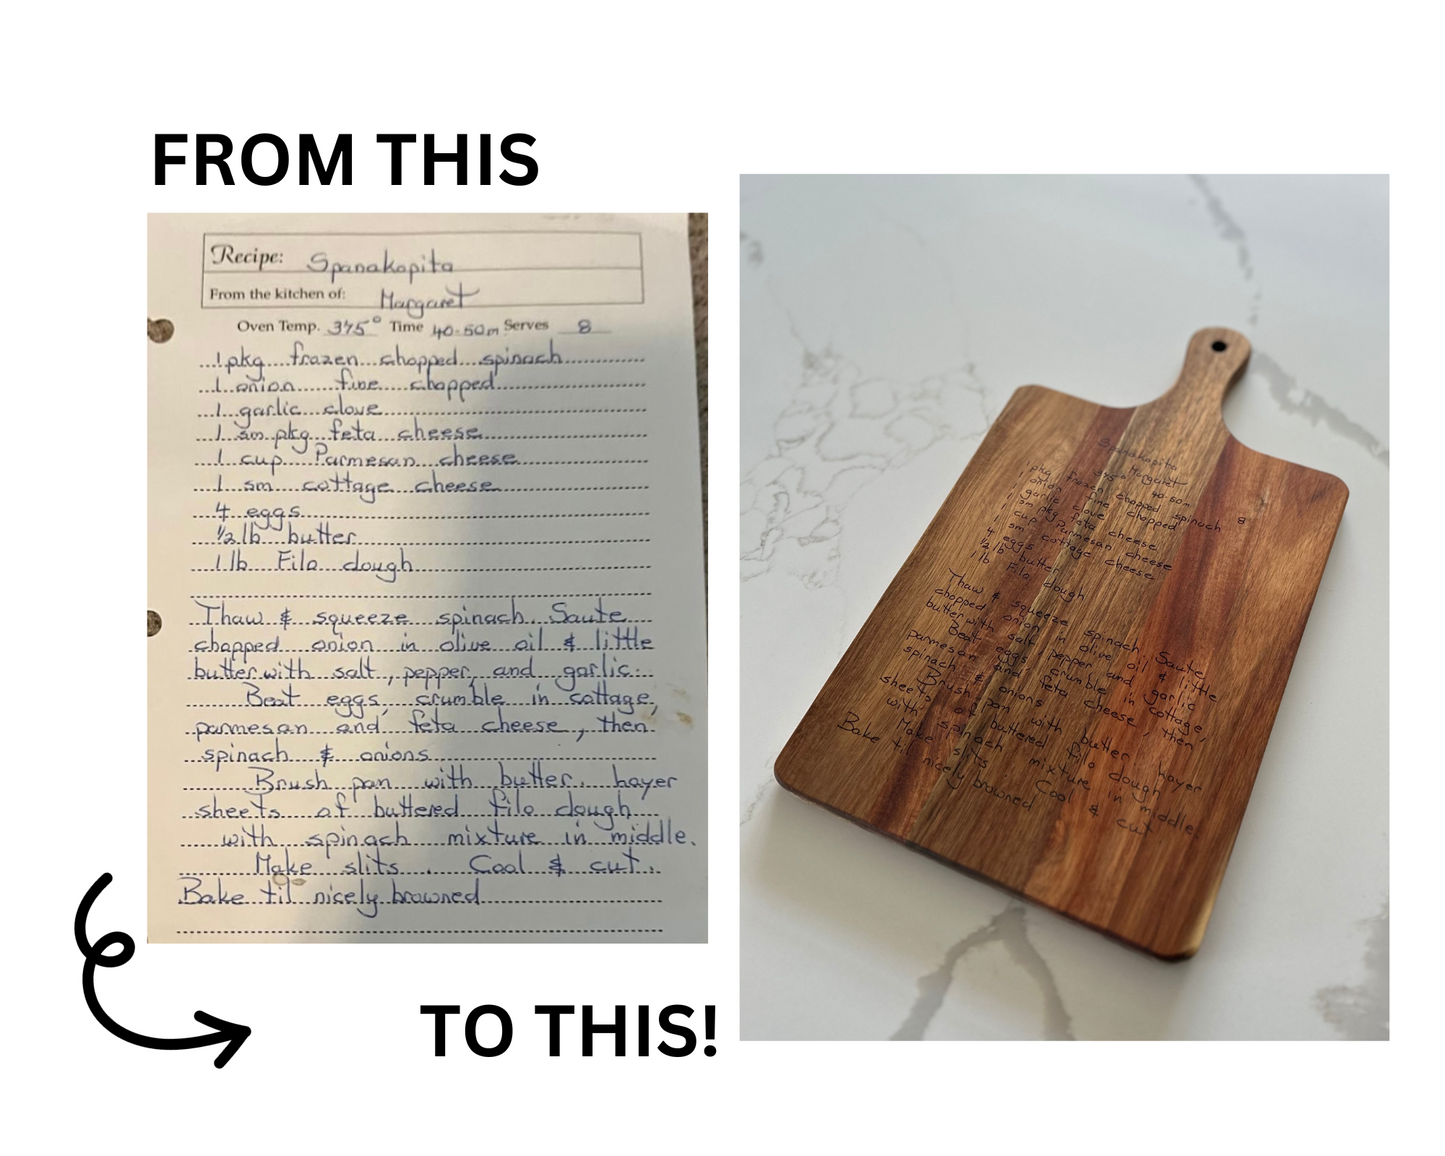 FROM THIS
Recipe: Spanakopita
From the kitchen of: Margaret
Oven Temp. 375° Time 40-50m Serves 8
1 pkg frozen chopped spinach
1 onion fine chopped
1 garlic clove
1 sm pkg feta cheese
1 cup Parmesan cheese
1 sm cottage cheese
4 eggs
1/2 lb butter
1 lb Filo dough
Thaw & squeeze spinach Saute
chopped onion in olive oil & little
butter with salt, pepper, and garlic.
Beat eggs, crumble in cottage,
parmesan and feta cheese, then
spinach & onions
Brush pan with butter. Layer
sheets of buttered filo dough
with spinach mixture in middle.
Make slits. Cool & cut.
Bake til nicely browned
TO THIS!
Spanakopita
Margaret
375° 40-50m 8
1 pkg frozen chopped spinach
1 onion fine chopped
1 garlic clove
1 sm pkg feta cheese
1 cup Parmesan cheese
1 sm cottage cheese
4 eggs
1/2 lb butter
1 lb Filo dough
Thaw & squeeze spinach Saute
chopped onion in olive oil & little
butter with salt, pepper, and garlic
Beat eggs, crumble in cottage,
parmesan and feta cheese, then
spinach & onions
Brush pan with butter Layer
sheets of buttered filo dough
with spinach mixture in middle.
Make slits Cool & cut
Bake til nicely browned